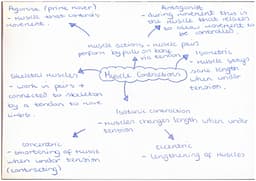 Agonise (prime mover)
- muscle that controls
movement.
Antagonist
- during movement this is
the muscle that relaxes
to allow movement to
be controlled
Muscle actions - muscle pairs
perform by pull on bone
via tension
Isometric
- Muscle stays
same length
when under
tension.
Skeletal muscles
- work in pairs +
connected to skeleton
by a tendon to move
limbs.
Muscle Contractions
Isotonic contraction
- Muscles changes length when under
tension
concentric
- shortening of muscle
when under tension
(contracting)
Eccentric
- lengthening of muscles